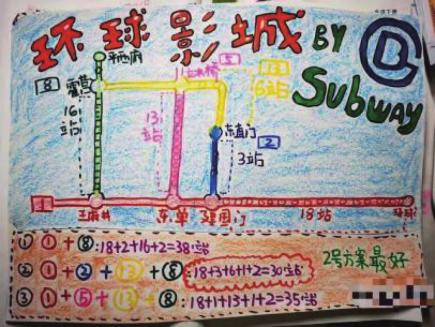 环球影城 BY
SUBWAY
平西府
8 霍营
5
13
6站
16站
13站
东直门
2
3站
1
王府井
东单
建国门
18站
① 1+8:18+2+16+2=38站
② 1+2+13+8:18+3+6+1+2=30站
2号方案最好
③ 1+5+13+8:18+1+13+1+2=35站